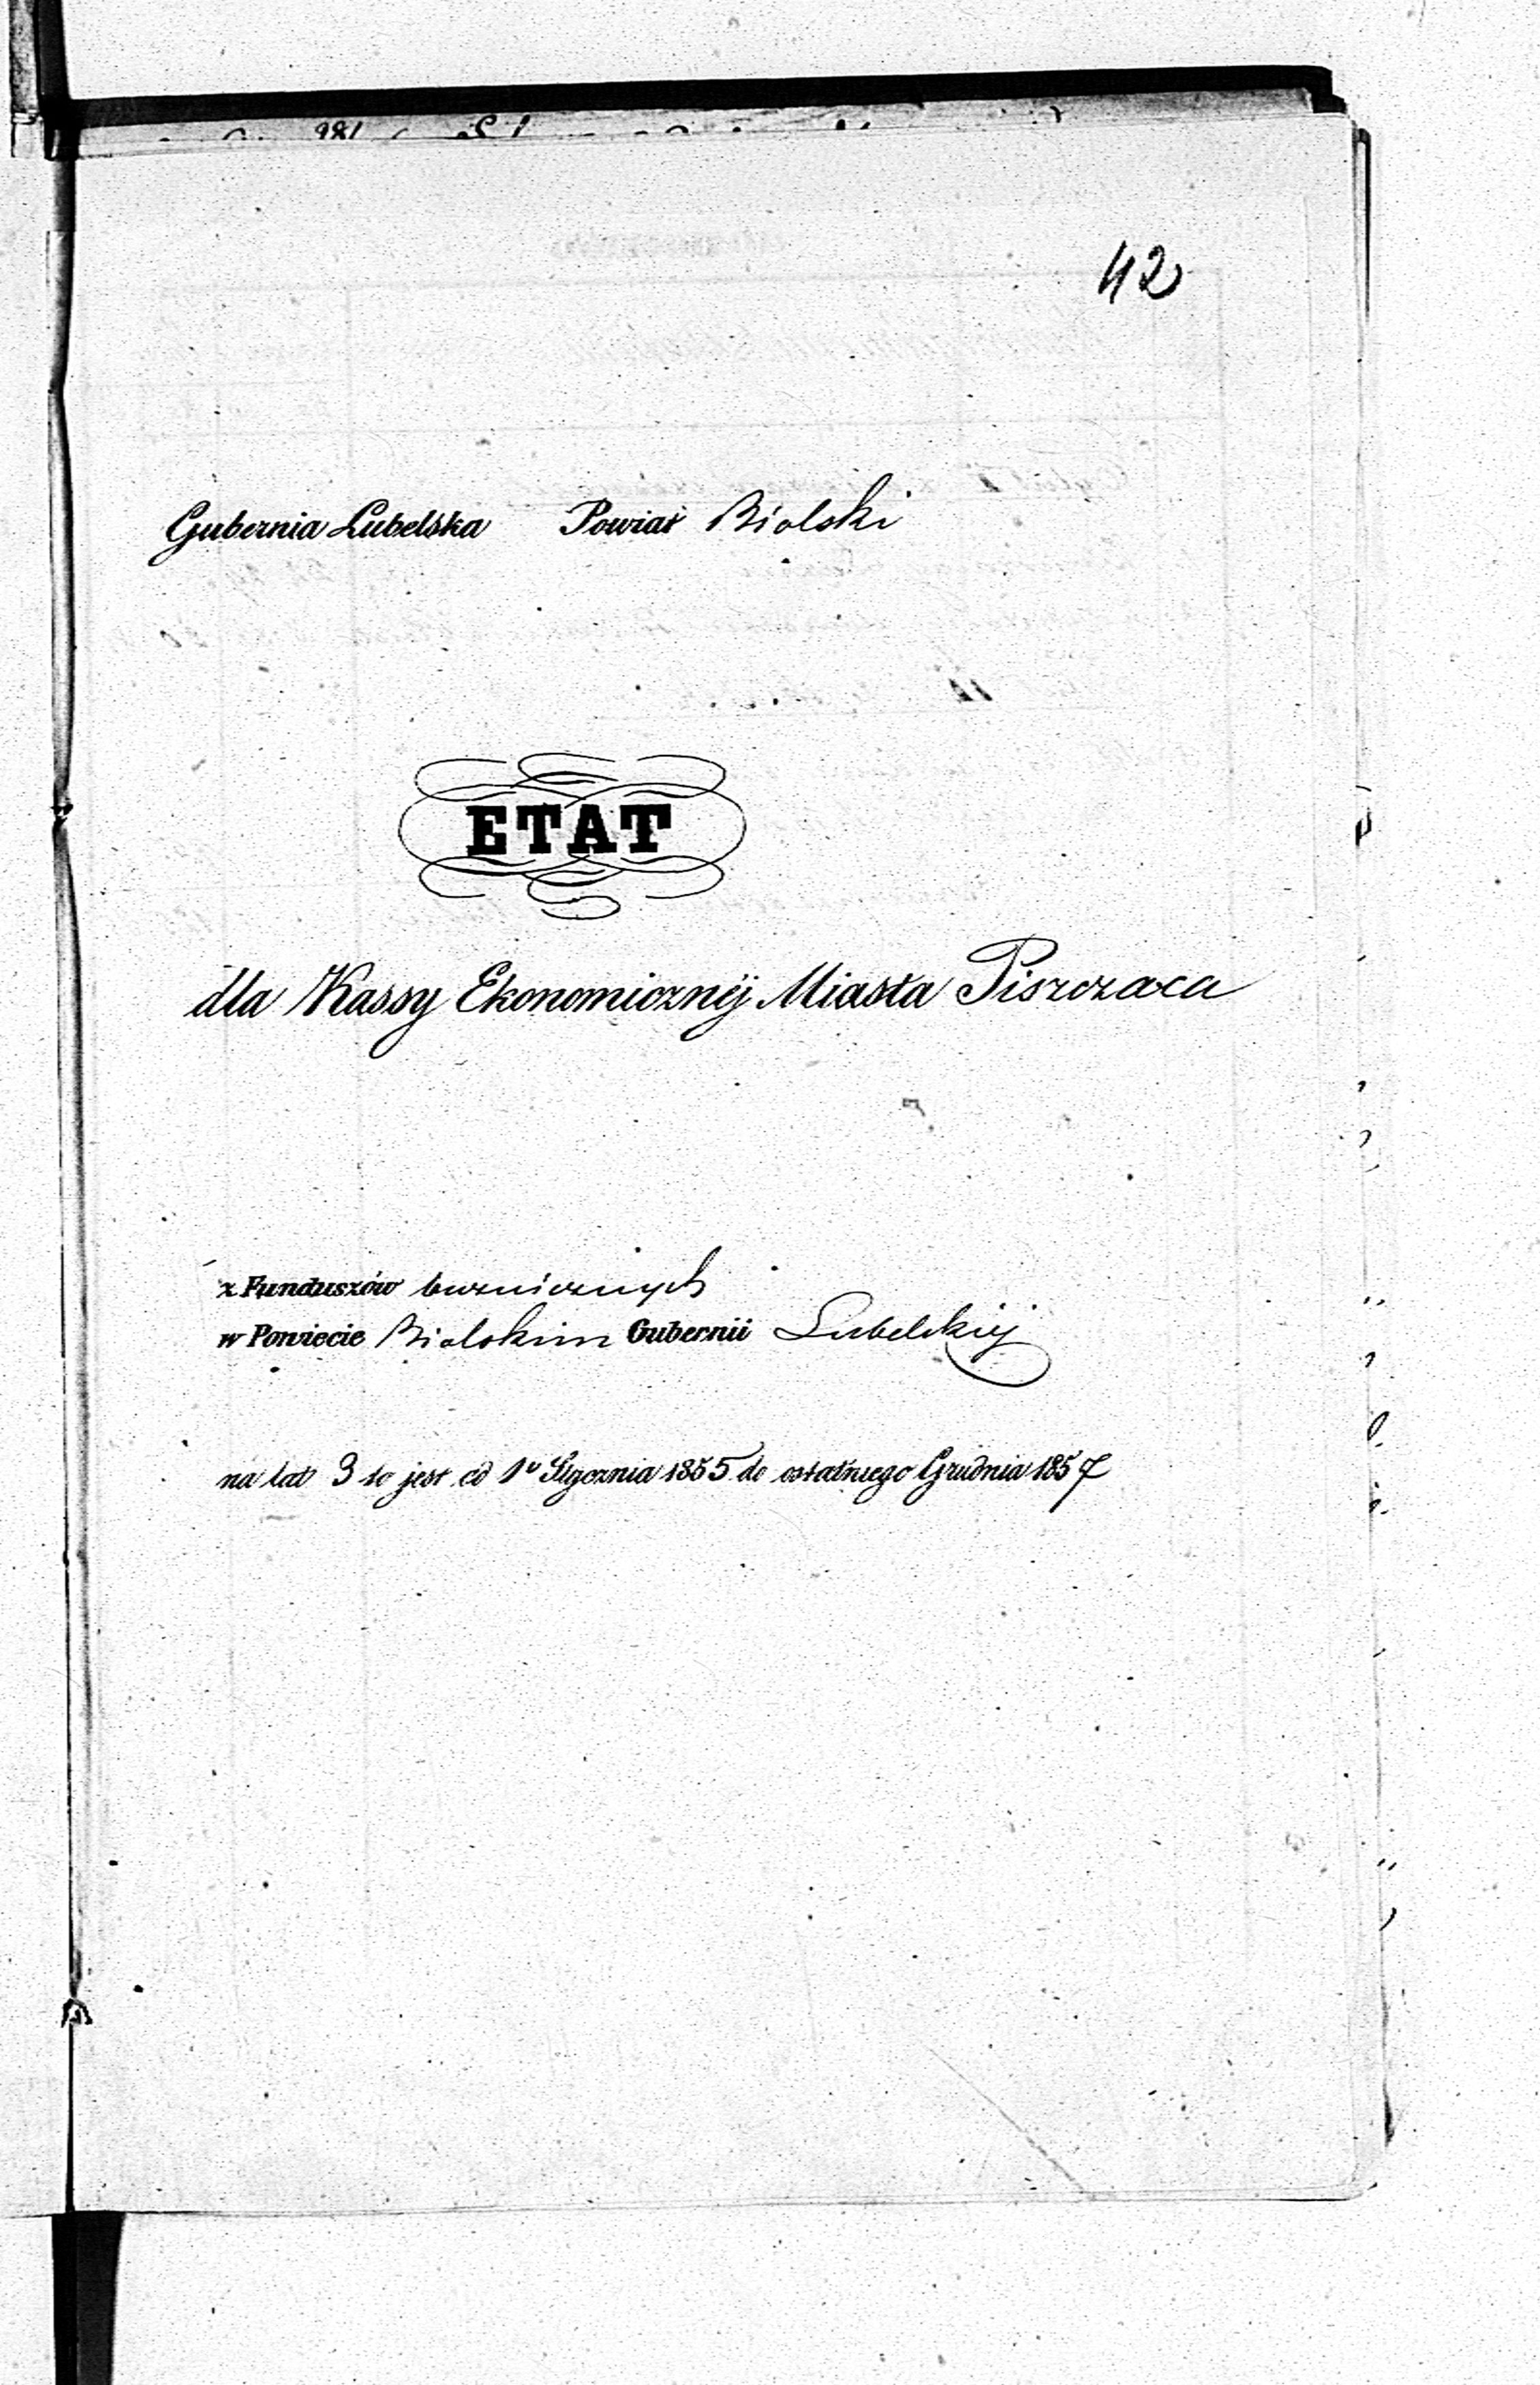 42
Gubernia Lubelska Powiat Bialski
ETAT
dla Kassy Ekonomicznéj Miasta Piszczaca
z Funduszów bożniczych
w Powiecie Bialskim Gubernii Lubelskiéj
na lat 3 to jest od 1º Stycznia 1855 do ostatniego Grudnia 1857